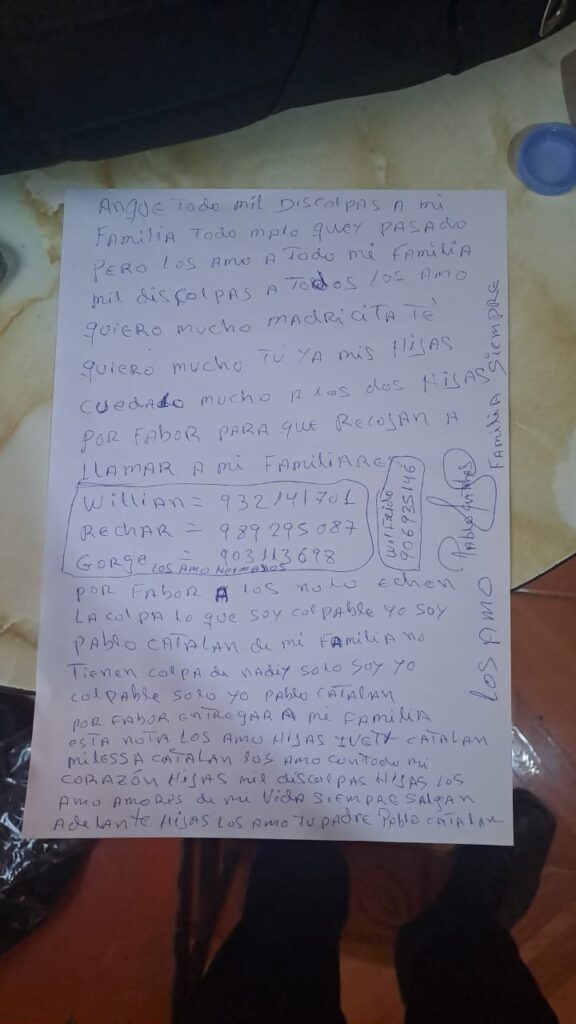 ANQUE TODO MIL DISCOLPAS A MI
FAMILIA TODO MALO QUEY PASADO
PERO LOS AMO A TODO MI FAMILIA
MIL DISCOLPAS A TODOS LOS AMO
QUIERO MUCHO MADRICITA TÉ
QUIERO MUCHO TÚ YA MIS HIJAS
CUEDALO MUCHO A LOS DOS HIJAS
POR FABOR PARA QUE RECOJAN A
LLAMAR A MI FAMILIARES
WILLIAN = 932141701
RECHAR = 989295087
GORGE = 903113698
LOS AMO HERMANOS
WILFREDO
906935146
PABLO
LOS AMO FAMILIA SIEMPRE
POR FABOR A LOS NO LO ECHEN
LA COLPA LO QUE SOY COLPABLE YO SOY
PABLO CATALAN DE MI FAMILIA NO
TIENEN COLPA DE NADIY SOLO SOY YO
COLPABLE SOLO YO PABLO CATALAN
POR FABOR ENTREGAR A MI FAMILIA
ESTA NOTA LOS AMO HIJAS YVETH CATALAN
MILESSA CATALAN LOS AMO CONTODO MI
CORAZÓN HIJAS MIL DISCOLPAS HIJAS LOS
AMO AMORES DE MI VIDA SIEMPRE SALGAN
ADELANTE HIJAS LOS AMO TU PADRE PABLO CATALAN